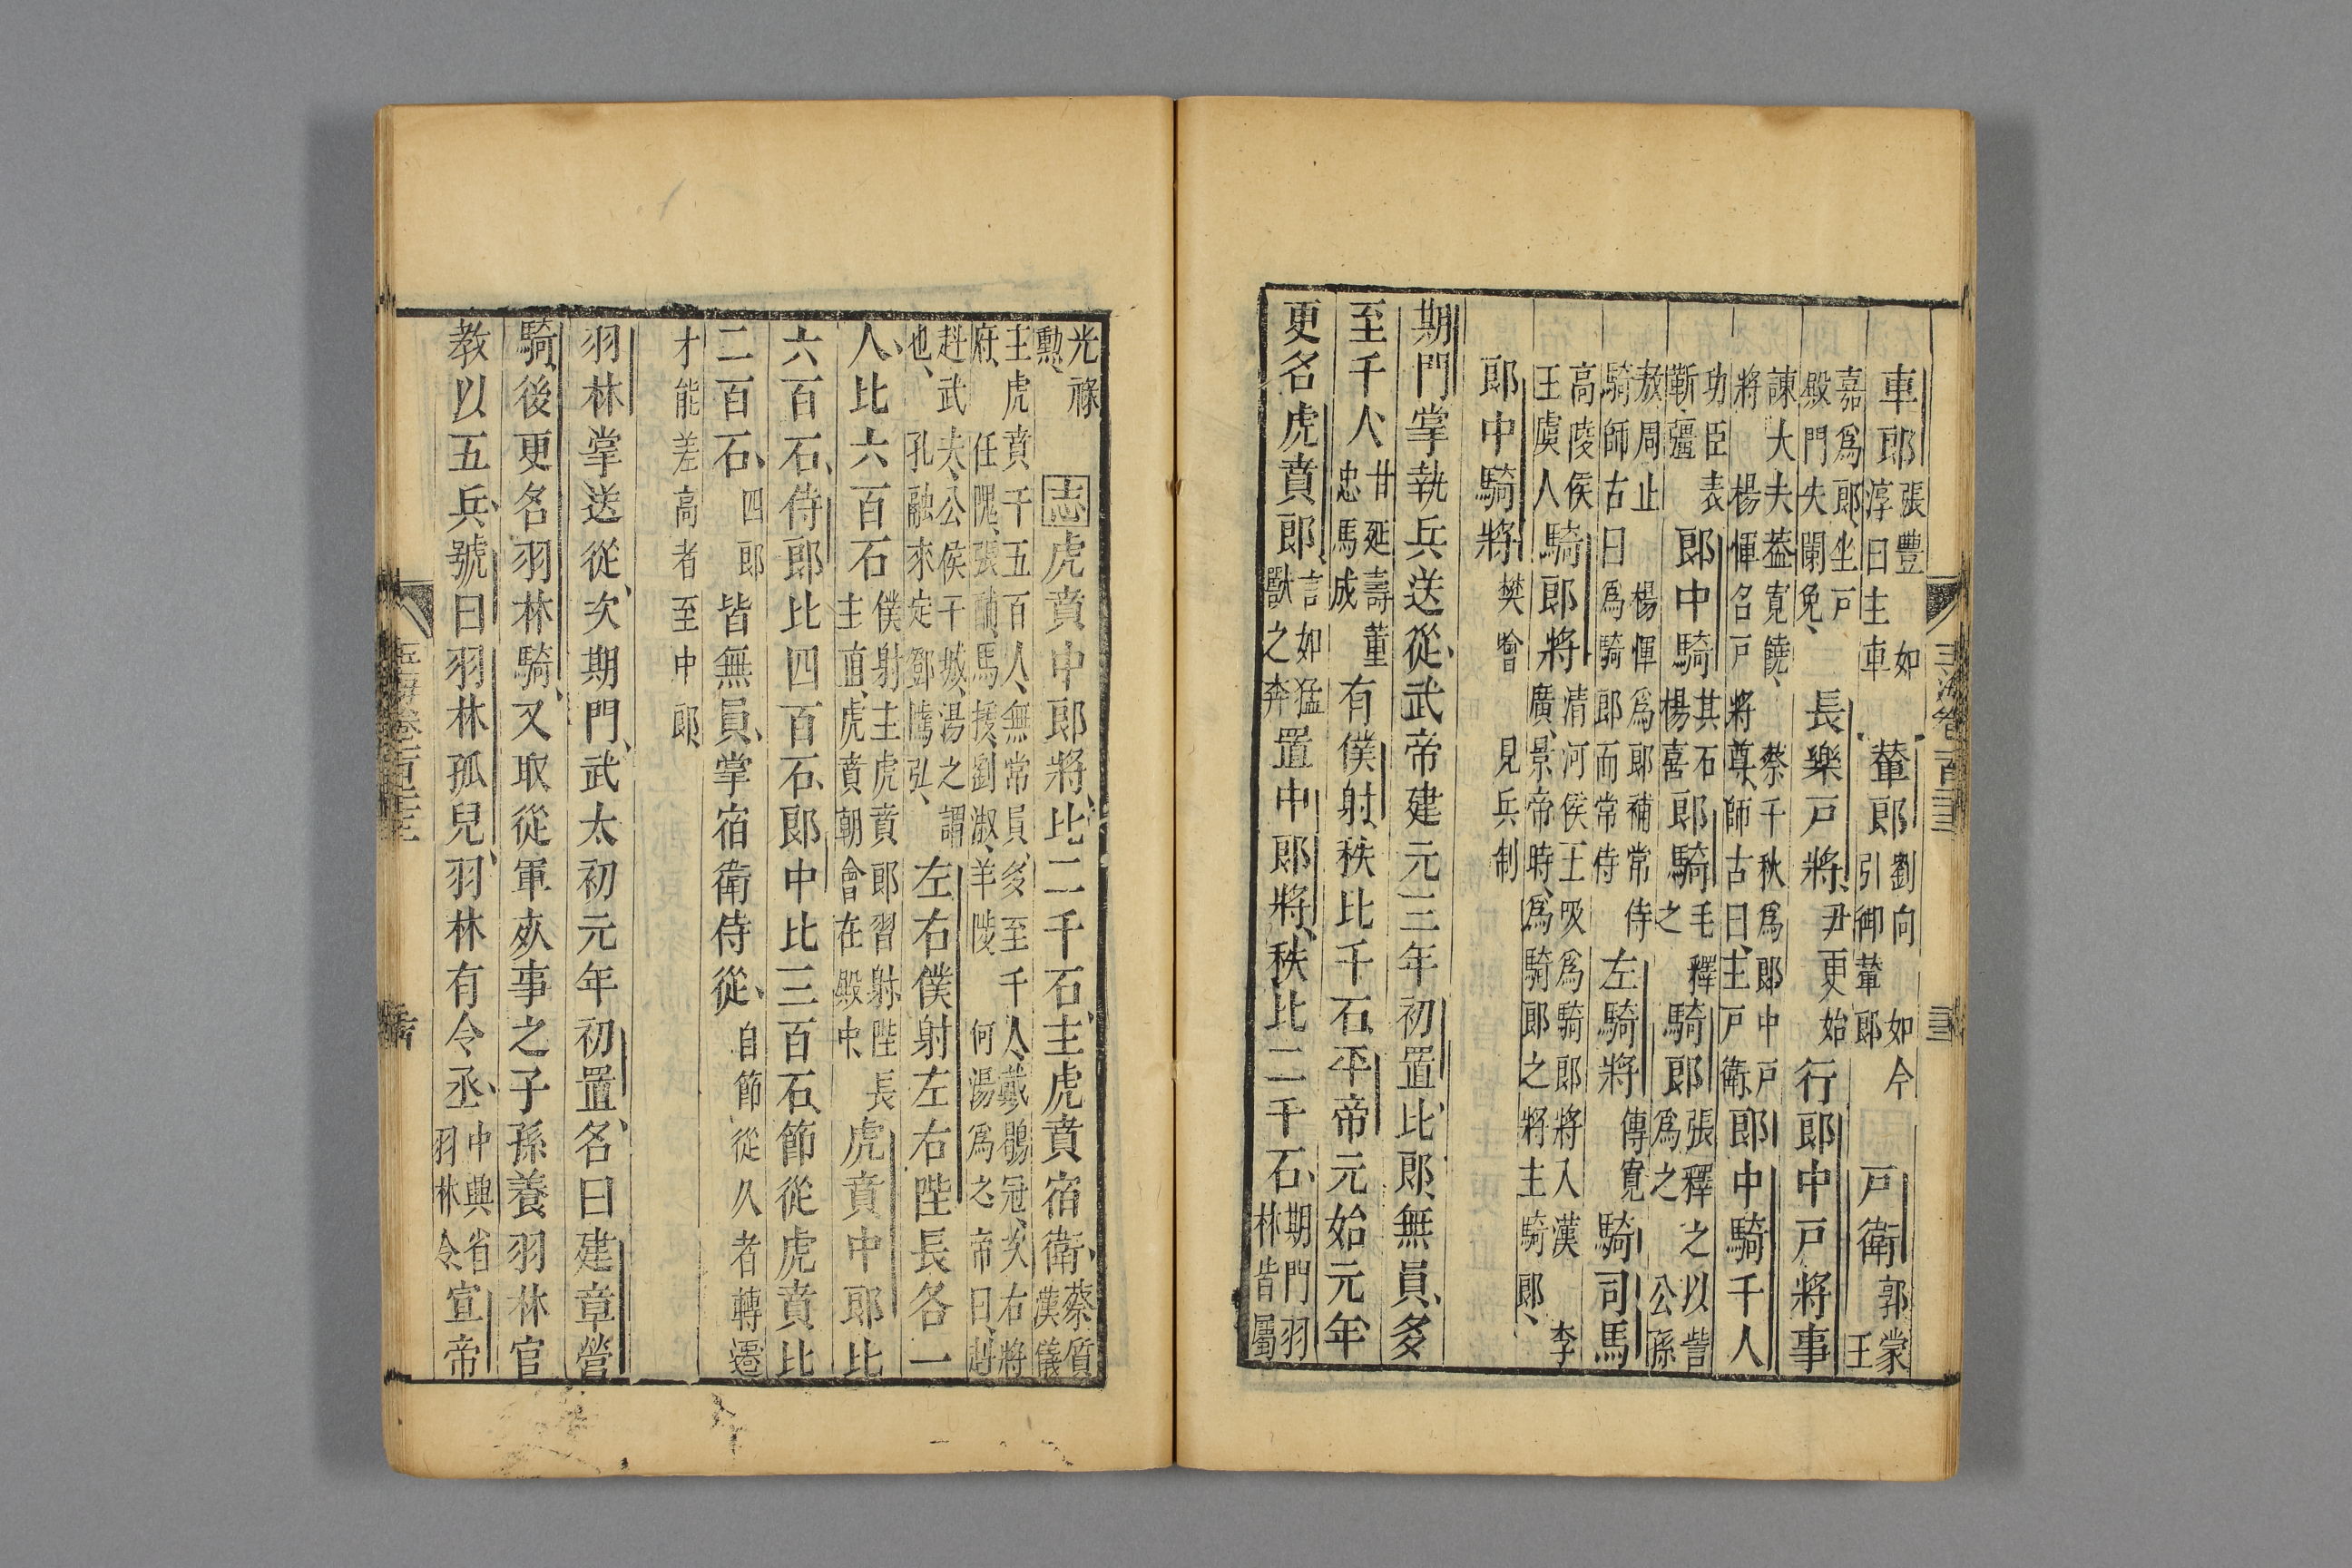 車郎張豐如淳曰主車 輦郎劉向如今引御輦郎 戶衛郭蒙王
嘉爲郎、坐戶殿門失闌免、 長樂戶將、尹更始 行郎中戶將事
諫大夫葢寬饒、將 楊惲名戶將尊、蔡千秋爲郎中戶師古曰、主戶衛、郎中騎千人
功臣表靳彊 郎中騎其石楊喜 郎騎毛釋之 騎郎張釋之以訾爲之公孫
敖周止騎師古曰爲騎郎而常侍楊惲爲郎補常侍 左騎將傳寬 騎司馬
高陵侯王虞人 騎郎將清河侯王吸爲騎郎將入漢 李廣、景帝時、爲騎郎之將主騎郎、
郎中騎將樊噲 見兵制
期門掌執兵送從、武帝建元三年初置、比郎、無員、多
至千人、甘延壽董忠馬成有僕射、秩比千石、平帝元始元年、
更名虎賁郎、言如猛獸之奔置中郎將、秩比二千石、期門羽林皆屬
光祿勲、 志虎賁中郎將、比二千石、主虎賁宿衛、蔡質漢儀
主虎賁千五百人、無常員、多至千人、戴鶡冠、次右將府、任隗、張酺、馬援、劉淑、羊陵何湯爲之、帝曰、赳
赳武夫、公侯干城、湯之謂也、孔融來定鄧騭弘、左右僕射左右陛長各一
人、比六百石僕射主虎賁郎習射、陛長主直、虎賁朝會在殿中、虎賁中郎比
六百石、侍郎比四百石、郎中比三百石、節從虎賁比
二百石、四郎皆無員、掌宿衛侍從、自節從久者轉遷
才能差高者至中郎、
羽林掌送從、次期門、武太初元年初置、名曰建章營
騎、後更名羽林騎、又取從軍死事之子孫養羽林官
教以五兵、號曰羽林孤兒、羽林有令丞、中興省羽林令宣帝